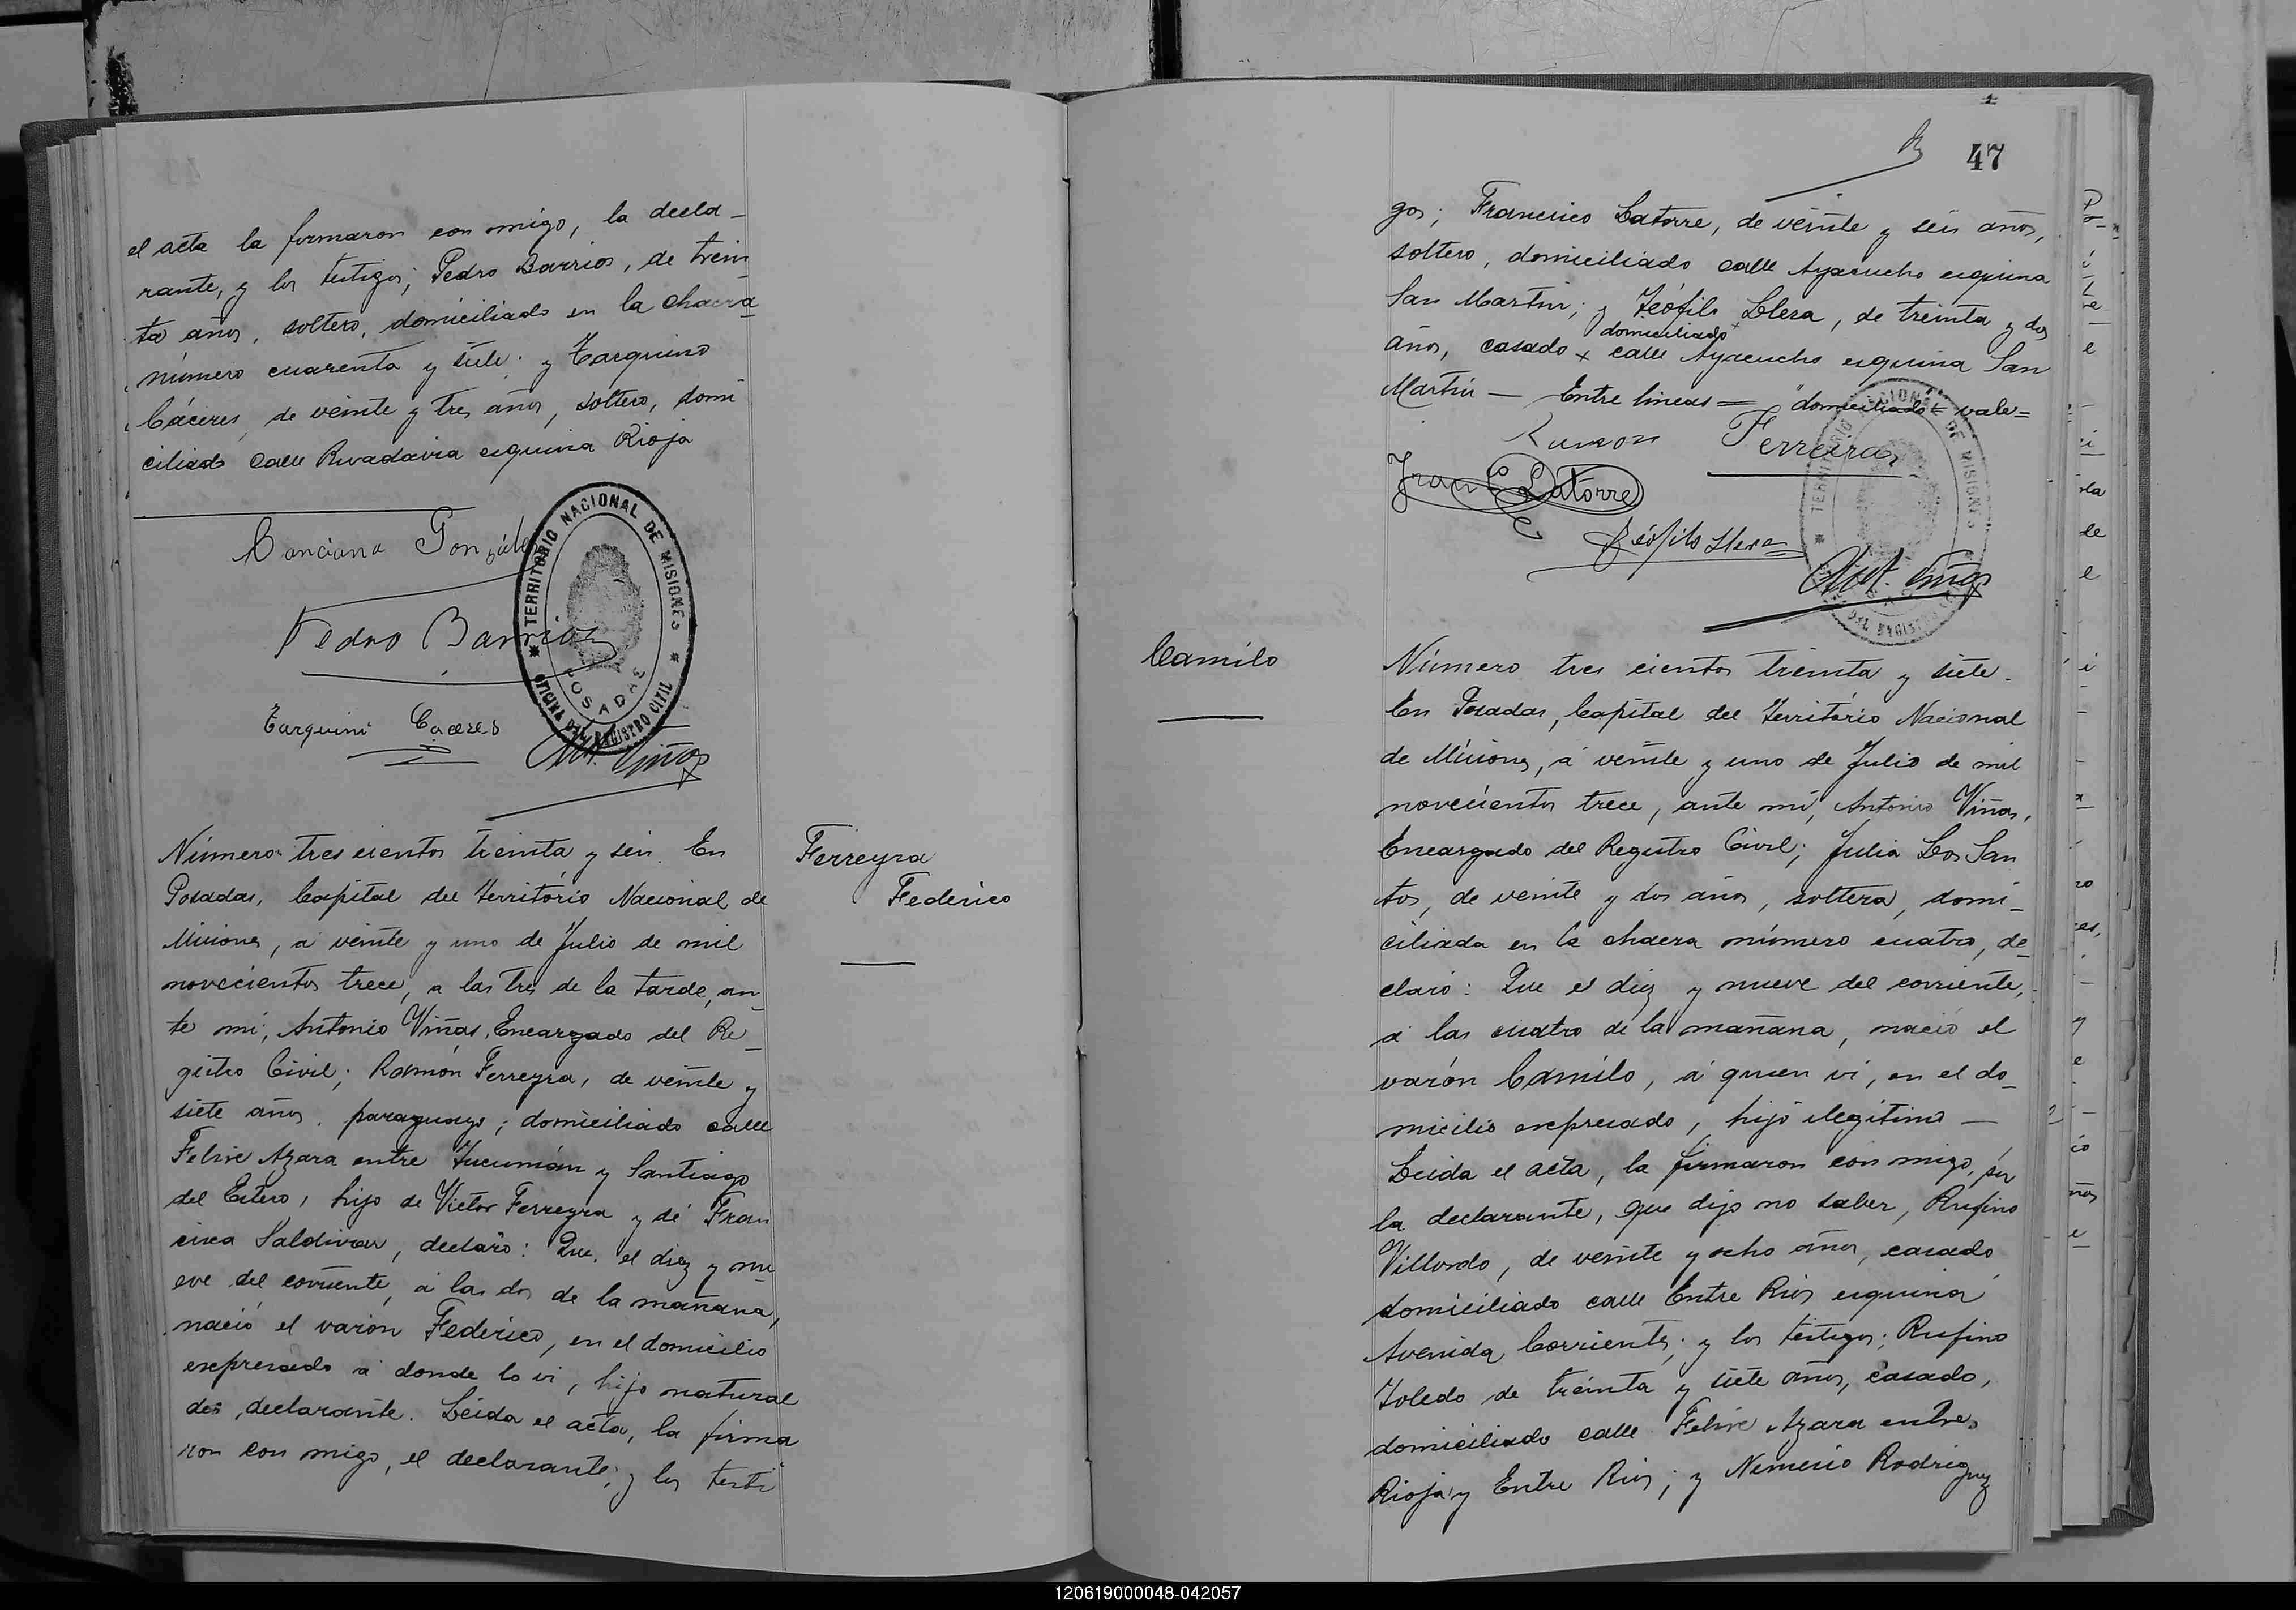 el acta la firmaron con migo, la decla-
rante, y los testigos; Pedro Barrios, de trein
ta años, soltero, domiciliado en la chacra
número cuarenta y siete; y Tarquino
Cáceres, de veinte y tres años, soltero, domi
ciliado calle Rivadavia esquina Rioja
Canciana González
Pedro Barrios
Tarquini Caceres
TERRITORIO NACIONAL DE MISIONES
OFICINA DEL REGISTRO CIVIL
POSADAS
Ant. Viñas
Número tres cientos treinta y seis. En
Posadas, Capital del Território Nacional de
Misiones, a veinte y uno de Julio de mil
novecientos trece, a las tres de la tarde, an-
te mi, Antonio Viñas, Encargado del Re-
gistro Civil; Ramón Ferreyra, de veinte y
siete años, paraguayo; domiciliado calle
Felix Azara entre Tucumán y Santiago
del Estero, hijo de Victor Ferreyra y de Fran
cisca Saldivar, declaró: Que, el diez y nu
eve del corriente, a las dos de la mañana,
nació el varón Federico, en el domicilio
expresado a donde lo vi, hijo natural
del declarante. Leida el acta, la firma
ron con migo, el declarante; y los testi
Ferreyra
Federico
47
gos; Francisco Latorre, de veinte y seis años,
soltero, domiciliado calle Ayacucho esquina
San Martin; y Teófilo Llera, de treinta y dos
domiciliado
años, casado x calle Ayacucho esquina San
Martin — Entre lineas = "domiciliado = vale =
Ramon Ferreira
Fran Co Latorre
Teófilo Llera
Ant. Viñas
TERRITORIO NACIONAL DE MISIONES
DEL REGISTRO
Camilo
Número tres cientos treinta y siete.
En Posadas, Capital del Território Nacional
de Misiones, á veinte y uno de Julio de mil
novecientos trece, ante mi, Antonio Viñas,
Encargado del Registro Civil; Julia Dos San
tos, de veinte y dos años, soltera, domi-
ciliada en la chacra número cuatro, de-
claró: Que el diez y nueve del corriente,
a las cuatro de la mañana, nació el
varón Camilo, á quien vi, en el do-
micilio expresado, hijo ilegitimo —
Leida el acta, la firmaron con migo, por
la declarante, que dijo no saber, Rufino
Villordo, de veinte y ocho años, casado
domiciliado calle Entre Rios esquina
Avenida Corrientes; y los testigos; Rufino
Toledo de treinta y siete años, casado,
domiciliado calle Felix Azara entre
Rioja y Entre Rios; y Nemesio Rodriguez
120619000048-042057